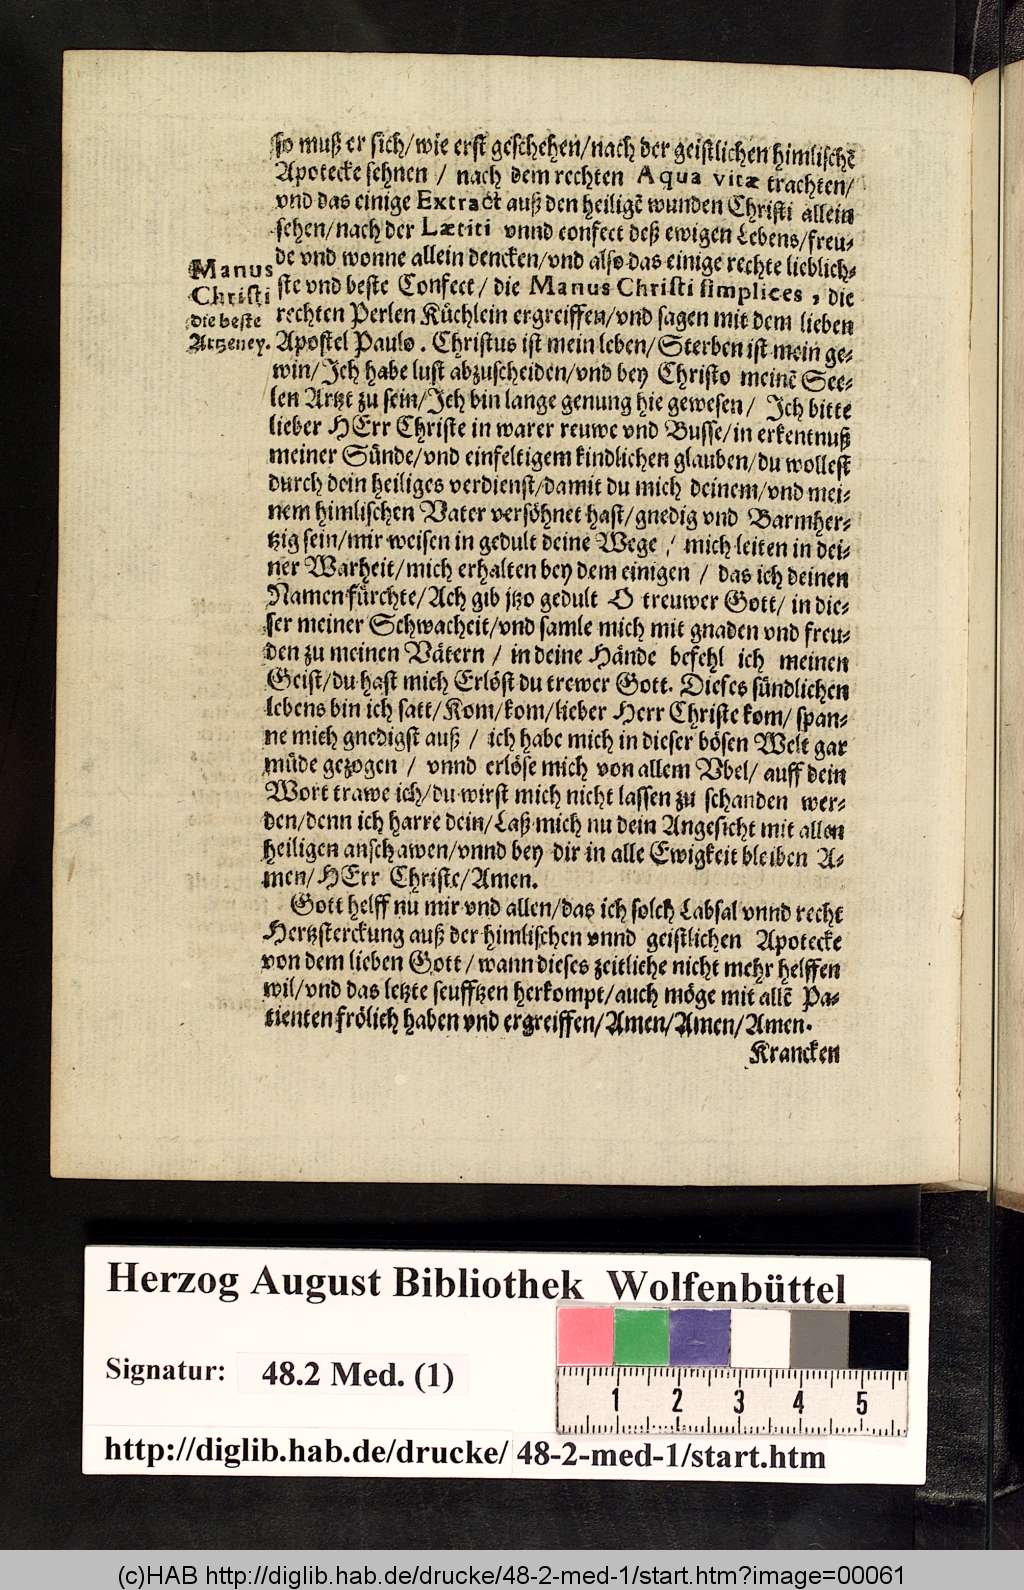 so muß er sich/wie erst geschehen/nach der geistlichen himlischẽ
Apotecke sehnen / nach dem rechten Aqua vitæ trachten/
vnd das einige Extract auß den heiligẽ wunden Christi allein
sehen/nach der Lætiti vnnd confect deß ewigen Lebens/freu-
de vnd wonne allein dencken/vnd also das einige rechte lieblich-
ste vnd beste Confect/ die Manus Christi simplices, die
rechten Perlen Küchlein ergreiffen/vnd sagen mit dem lieben
Apostel Paulo. Christus ist mein leben/Sterben ist mein ge-
win/Ich habe lust abzuscheiden/vnd bey Christo meinẽ See-
len Artzt zu sein/Ich bin lange genung hie gewesen/ Ich bitte
lieber HErr Christe in warer reuwe vnd Busse/in erkentnuß
meiner Sünde/vnd einfeltigem kindlichen glauben/du wollest
durch dein heiliges verdienst/damit du mich deinem/vnd mei-
nem himlischen Vater versöhnet hast/gnedig vnd Barmher-
tzig sein/mir weisen in gedult deine Wege / mich leiten in dei-
ner Warheit/mich erhalten bey dem einigen / das ich deinen
Namen fürchte/Ach gib jtzo gedult O treuwer Gott/ in die-
ser meiner Schwacheit/vnd samle mich mit gnaden vnd freu-
den zu meinen Vätern / in deine Hände befehl ich meinen
Geist/du hast mich Erlöst du trewer Gott. Dieses sündlichen
lebens bin ich satt/Kom/kom/lieber Herr Christe kom/ span-
ne mich gnedigst auß / ich habe mich in dieser bösen Welt gar
müde gezogen / vnnd erlöse mich von allem Vbel/ auff dein
Wort trawe ich/du wirst mich nicht lassen zu schanden wer-
den/denn ich harre dein/Laß mich nu dein Angesicht mit allen
heiligen anschawen/vnnd bey dir in alle Ewigkeit bleiben A-
men/HErr Christe/Amen.
Gott helff nu mir vnd allen/das ich solch Labsal vnnd recht
Hertzsterckung auß der himlischen vnnd geistlichen Apotecke
von dem lieben Gott/wann dieses zeitliche nicht mehr helffen
wil/vnd das letzte seufftzen herkompt/auch möge mit allẽ Pa-
tienten frölich haben vnd ergreiffen/Amen/Amen/Amen.
Krancken
Manus
Christi
die beste
Artzeney.
Herzog August Bibliothek Wolfenbüttel
Signatur: 48.2 Med. (1)
1 2 3 4 5
http://diglib.hab.de/drucke/ 48-2-med-1/start.htm
(c)HAB http://diglib.hab.de/drucke/48-2-med-1/start.htm?image=00061